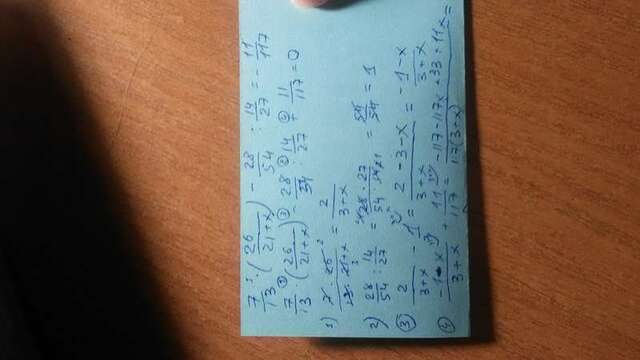 7/13 : (26/(21+x)) - 28/54 : 14/27 = - 11/117
7/13 · (26/(21+x)) - 28/54 : 14/27 + 11/117 = 0
1) 7 · 26/(13 · 21+x) = 2/(3+x)
2) 28/54 : 14/27 = 28 · 27/(54 · 14) = 54/54 = 1
③ 2/(3+x) - 1 = (2-3-x)/(3+x) = (-1-x)/(3+x)
④ (-1-x)/(3+x) + 11/117 = (-117-117x+33+11x)/(117(3+x)) =